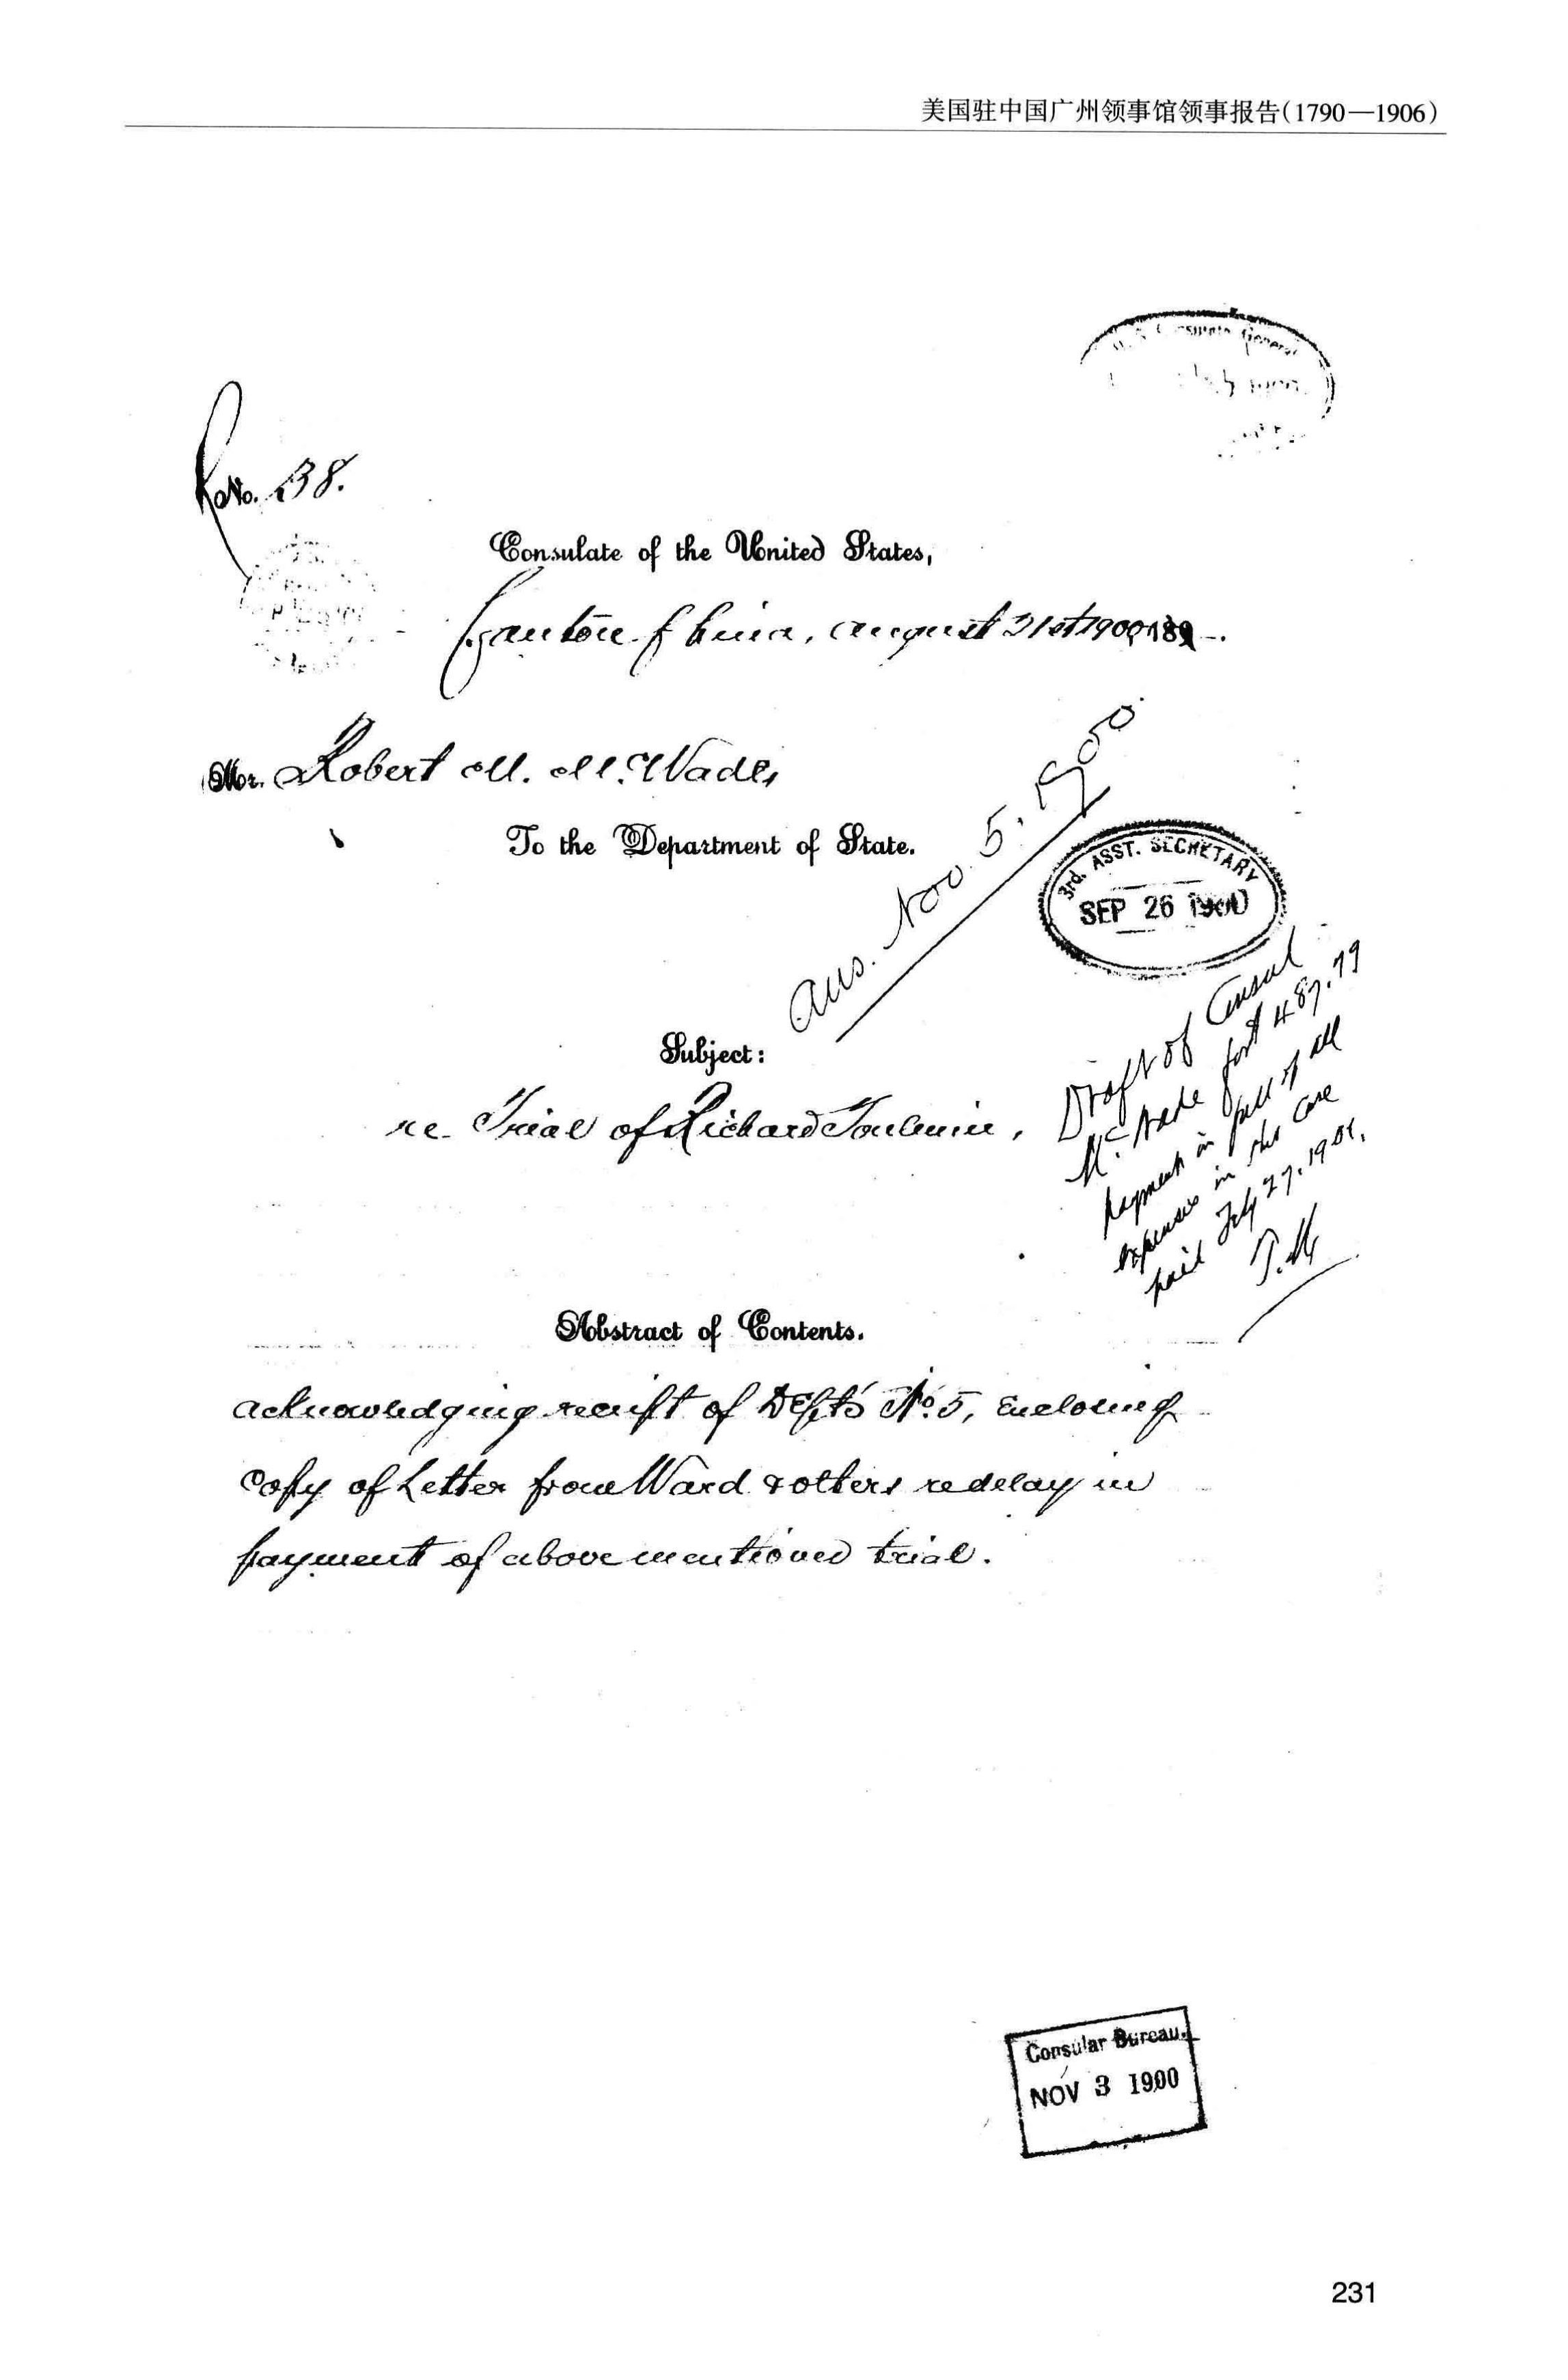 美国驻中国广州领事馆领事报告(1790—1906)
No. 38.
Consulate of the United States,
Canton China, August 31st 1900 189 .
Mr. Robert M. McWade,
To the Department of State.
Ans. Nov. 5. 1900.
3rd. ASST. SECRETARY
SEP 26 1900
Subject:
re. Trial of Richard Toulmin,
Draft of Consul
McWade for $487.79
payment in full of all
expenses in this case
paid July 27, 1901.
Abstract of Contents.
acknowledging receipt of Dept's No. 5, enclosing
copy of Letter from Ward & others re delay in
payment of above mentioned trial.
Consular Bureau.
NOV 3 1900
231